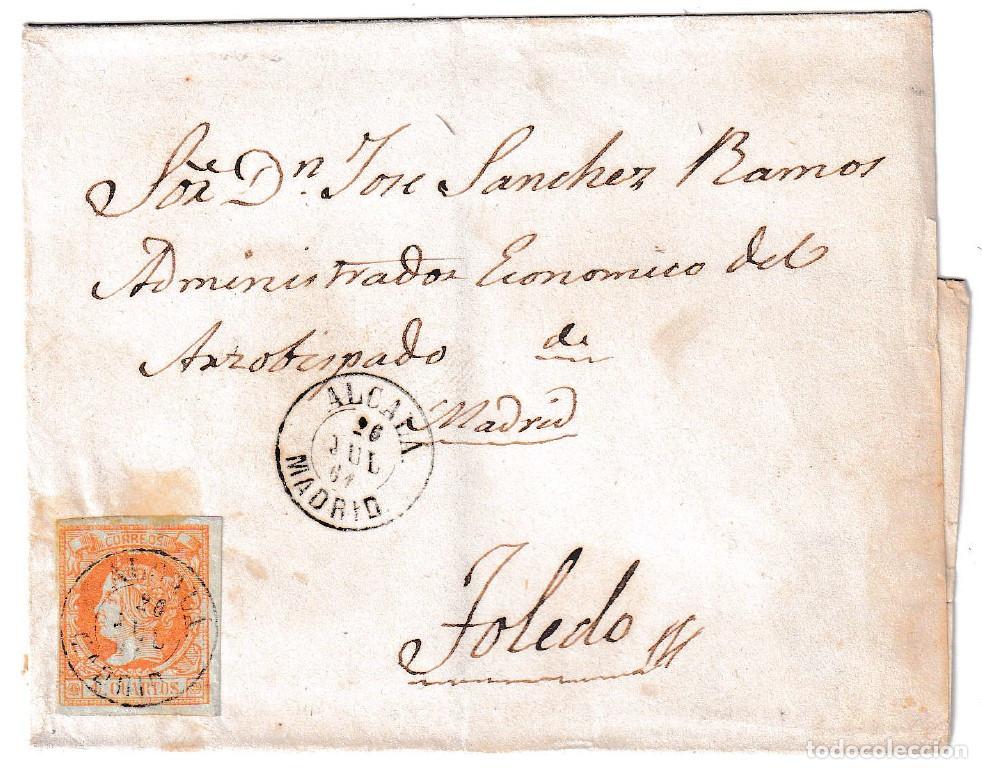 Sõre Dn. Jose Sanchez Ramos
Administrador Economico del
Arzobispado de
Madrid
ALCALA
26
JUL
61
MADRID
Toledo
CORREOS
CUARTOS
todocoleccion